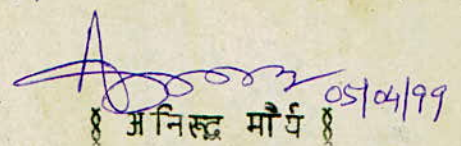 05/04/99
§ अनिरूद्ध मौर्य §